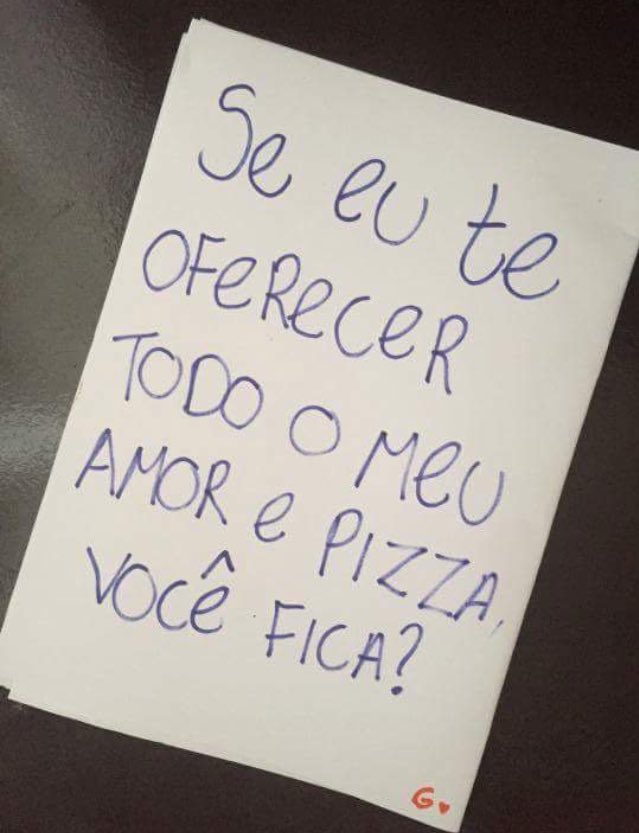 Se eu te
OFeReCeR
TODO O MeU
AMOR e PIZZA,
VOCê FICA?
G.♥